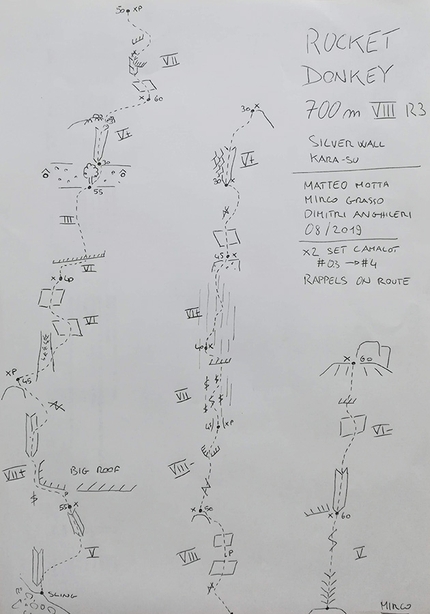 ROCKET
DONKEY
700m VIII R3
SILVER WALL
KARA-SU
MATTEO MOTTA
MIRCO GRASSO
DIMITRI ANGHILERI
08/2019
x2 SET CAMALOT
#03 → #4
RAPPELS ON ROUTE
50 XP
VII
X 60
V+
30
55
III
VI
X 40
VI
XP
45
VII+
BIG ROOF
P
55 X
V
SLING
30 X
V+
30 X
45 X
VII
40 X
VII
45 XP
VIII-
X 50
VIII
P
X 60
VI-
X 60
V
MIRCO